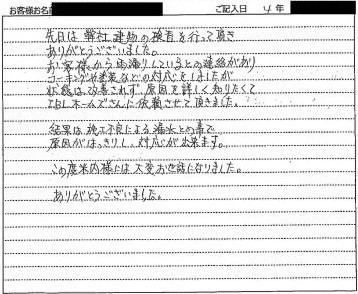 お客様お名前 ご記入日 4年
先日は弊社建物の検査を行って頂き
ありがとうございました。
お客様から雨漏りしているとの連絡があり
コーキングや塗装などの対応をしましたが
状態は改善されず、原因を詳しく知りたくて
JBLホームズさんに依頼させて頂きました。
結果は施工不良による漏水との事で
原因がはっきりし、対応が出来ます。
この度米内様には大変お世話になりました。
ありがとうございました。